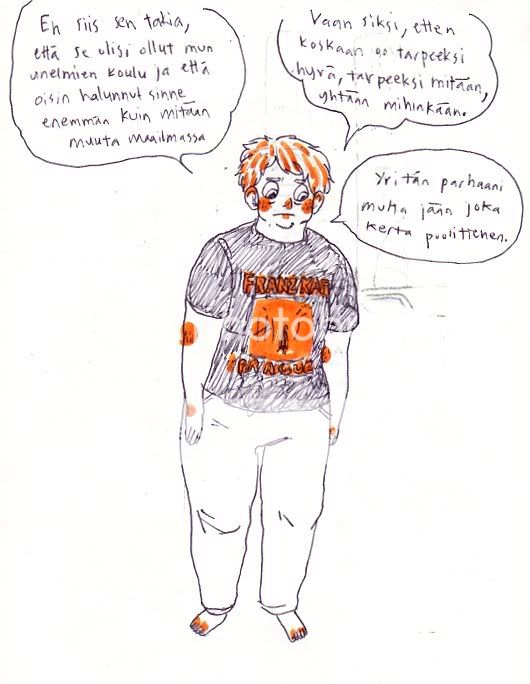 En siis sen takia,
että se olisi ollut mun
unelmien koulu ja että
oisin halunnut sinne
enemmän kuin mitään
muuta maailmassa
Vaan siksi, etten
koskaan oo tarpeeksi
hyvä, tarpeeksi mitään,
yhtään mihinkään.
Yritän parhaani
mutta jään joka
kerta puolitiehen.
FRANZ KAF
PRAGUE